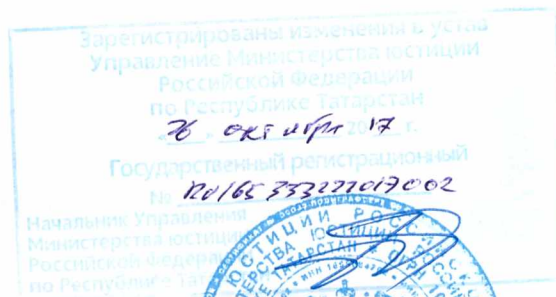 Зарегистрированы изменения в устав
Управление Министерства юстиции
Российской Федерации
по Республике Татарстан
26 октября 2017 г.
Государственный регистрационный
№ RU165333222017002
Начальник Управления
Министерства юстиции
Российской Федерации
по Республике
ЮСТИЦИИ РОССИЙСК
ЮСТИЦИИ
ТАТАРСТАН